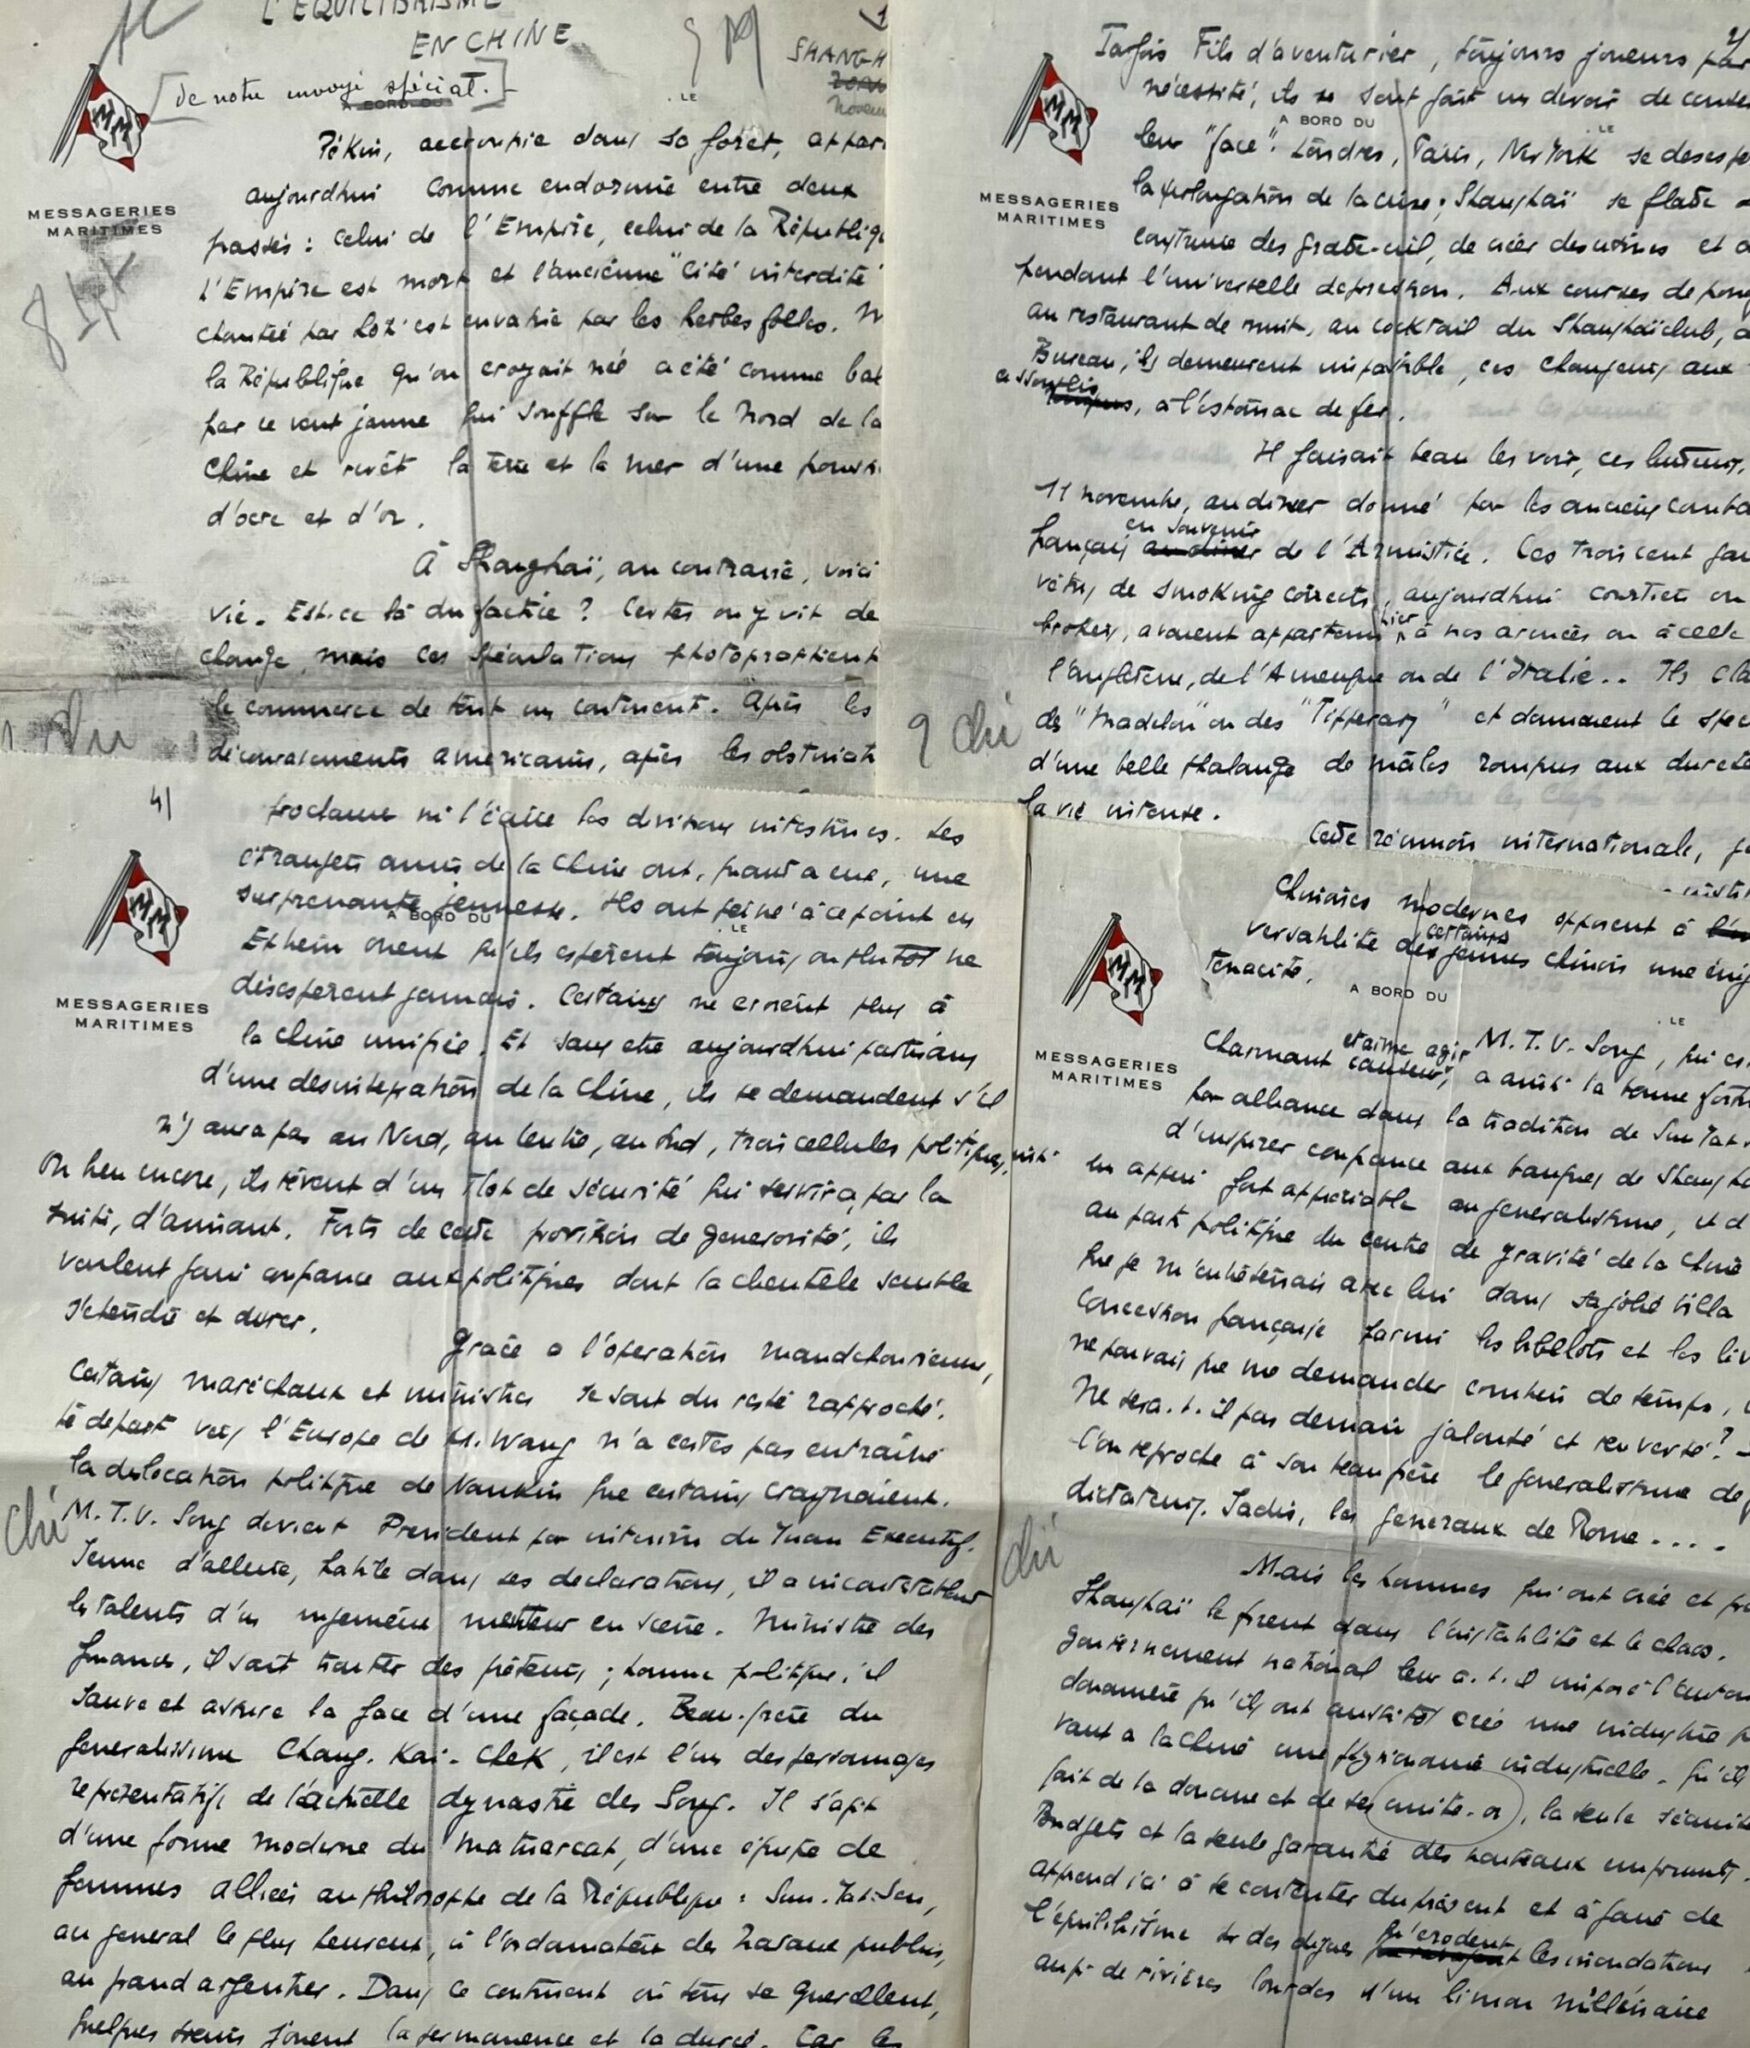 L'EQUILIBRISME
EN CHINE
SHANGH
[de notre envoyé spécial.]
A BORD DU
LE
MESSAGERIES
MARITIMES
Pékin, accroupie dans sa forêt, appar
aujourdhui comme endormie entre deux
passés : celui de l'Empire, celui de la Républiq
L'Empire est mort et l'ancienne "Cité interdite
chantée par Loti est envahie par les herbes folles. M
la République qu'on croyait née a été comme bal
par ce vent jaune qui souffle sur le Nord de la
Chine et revêt la terre et la mer d'une pouss
d'ocre et d'or.
À Shanghaï, au contraire, voici
vie. Est-ce là du factice ? Certes on y vit de
change, mais ces spéculations photographient
le commerce de tout un continent. Après les
américains, après les obstinat
2
Parfois fils d'aventurier, toujours joueurs par
nécessité, ils se sont fait un devoir de conser
A BORD DU
LE
leur "face". Londres, Paris, New York se desespe
MESSAGERIES
MARITIMES
la prolongation de la crise ; Shanghaï se flatte
construire des gratte-ciel, de créer des usines et
pendant l'universelle depression. Aux courses de pon
au restaurant de nuit, au cocktail du Shanghaï club, a
Bureau, ils demeurent impassible, ces changeurs aux
, à l'estomac de fer.
Il faisait beau les voir, ces lutteurs,
11 novembre, au diner donné par les anciens comba
en souvenir
français au diner de l'Armistice. Ces trois cent gai
vêtus de smoking corrects, aujourdhui courtiers ou
hier
brokers, avaient appartenu à nos armées ou à celle
l'angleterre, de l'Amerique ou de l'Italie.. Ils cla
des "Madelon" ou des "Tipperary" et donnaient le spec
d'une belle phalange de mâles rompus aux dureté
la vie intense.
Cette réunion internationale,
4/
proclame ni l'écrive les divisions intestines. Les
étrangers amis de la Chine ont, quant a eux, une
surprenante jeunesse. Ils ont peiné à ce point en
A BORD DU
LE
Extrem orient qu'ils espèrent toujours ou plutot ne
désespèrent jamais. Certains ne croient plus à
MESSAGERIES
MARITIMES
la Chine unifiée. Et sans etre aujourdhui partisans
d'une désintégration de la Chine, ils se demandent s'il
n'y aura pas au Nord, au Centre, au Sud, trois cellules politiques,
ou bien encore, ils rêvent d'un Ilot de sécurité qui servira, par la
suite, d'aimant. Forts de cette provision de generosité, ils
veulent faire confiance aux politiques dont la clientèle semble
s'étendre et durer.
Grace a l'opération mandchourienne,
Certains maréchaux et ministres se sont du reste rapproché.
Le départ vers l'Europe de M. Wang n'a certes pas entrainé
la dislocation politique de Nankin que certains craignaient.
M. T. V. Song devient President par interim du Yuan Executif.
Jeune d'allure, habile dans ses declarations, il a incontestablement
les talents d'un ingénieux metteur en scène. Ministre des
finances, il sait traiter des prêteurs ; homme politique, il
sauve et assure la face d'une façade. Beau-frère du
generalissime Chang-Kai-Chek, il est l'un des personnages
représentatifs de l'actuelle dynastie des Song. Il s'agit
d'une forme moderne du matriarcat, d'une équipe de
femmes alliées au philosophe de la République : Sun-Yat-Sen,
au general le plus , à l'ordonnateur des Travaux publics,
au grand argentier. Dans ce continent où tous se querellent,
quelques soeurs jouent la permanence et la durée. Car les
Chinoises modernes opposent à
certains
versatilité des jeunes chinois une
tenacité.
A BORD DU
LE
MESSAGERIES
MARITIMES
et aime agir
M. T. V. Song, qui es
Charmant causeur, a aussi la bonne fort
par alliance dans la tradition de Sun Yat
d'inspirer confiance aux banques de Shangh
un appui fort appréciable au generalissime, et d
au parti politique du centre de gravité de la Chine
que je m'entretenais avec lui dans sa jolie villa
Concession française parmi les bibelots et les liv
ne pouvais que me demander combien de temps,
Ne sera-t-il pas demain jalousé et renversé ? -
l'on reproche à son beau frère le generalissime
dictateurs. Jadis, les generaux de Rome ....
Mais les hommes qui ont créé et
Shanghaï le firent dans l'instabilité et le chaos.
gouvernement national leur a-t-il imposé l'auton
douanière qu'ils ont aussitôt créé une industrie
vant a la Chine une physionomie industrielle. Qu'il
fait de la douane et de ses unité-or, la seule sécurité
Budgets et la seule garantie des nouveaux emprunts.
apprend ici à se contenter du présent et à faire de
l'équilibrisme sur des digues qu'érodent les inondations
de rivières lourdes d'un limon millénaire